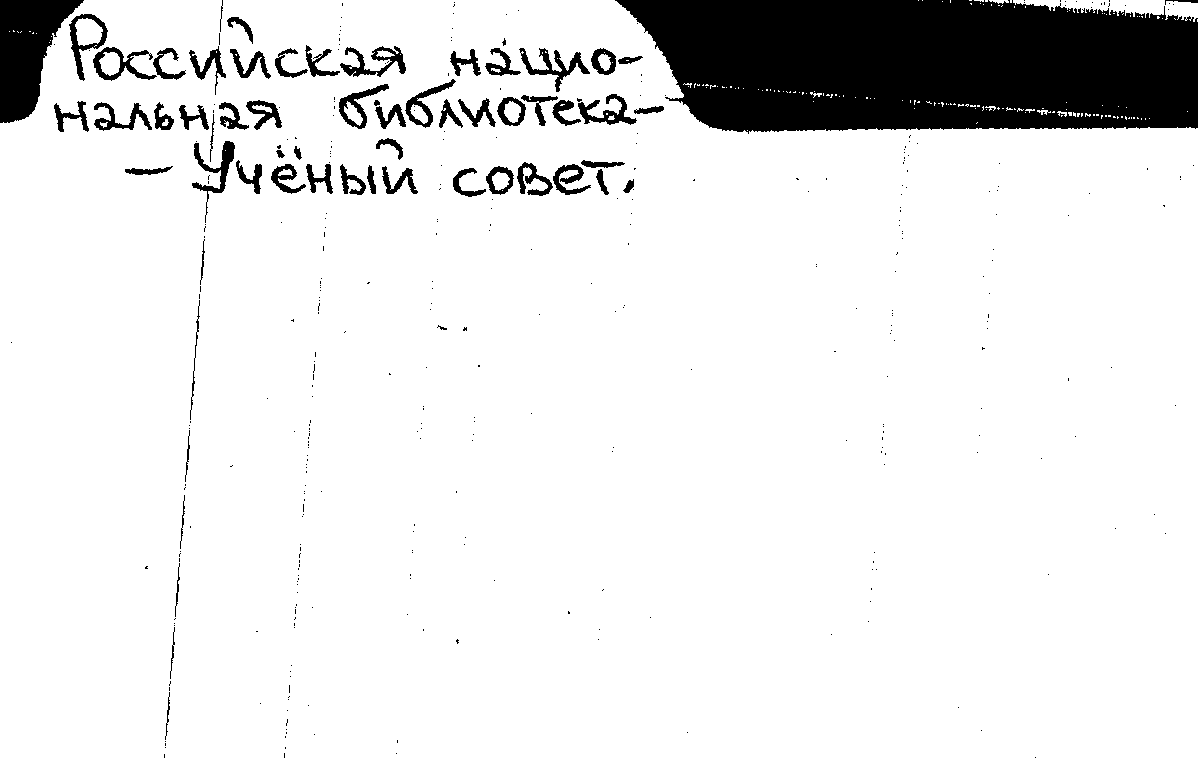 Российская нацио-
нальная библиотека-
- Учёный совет.